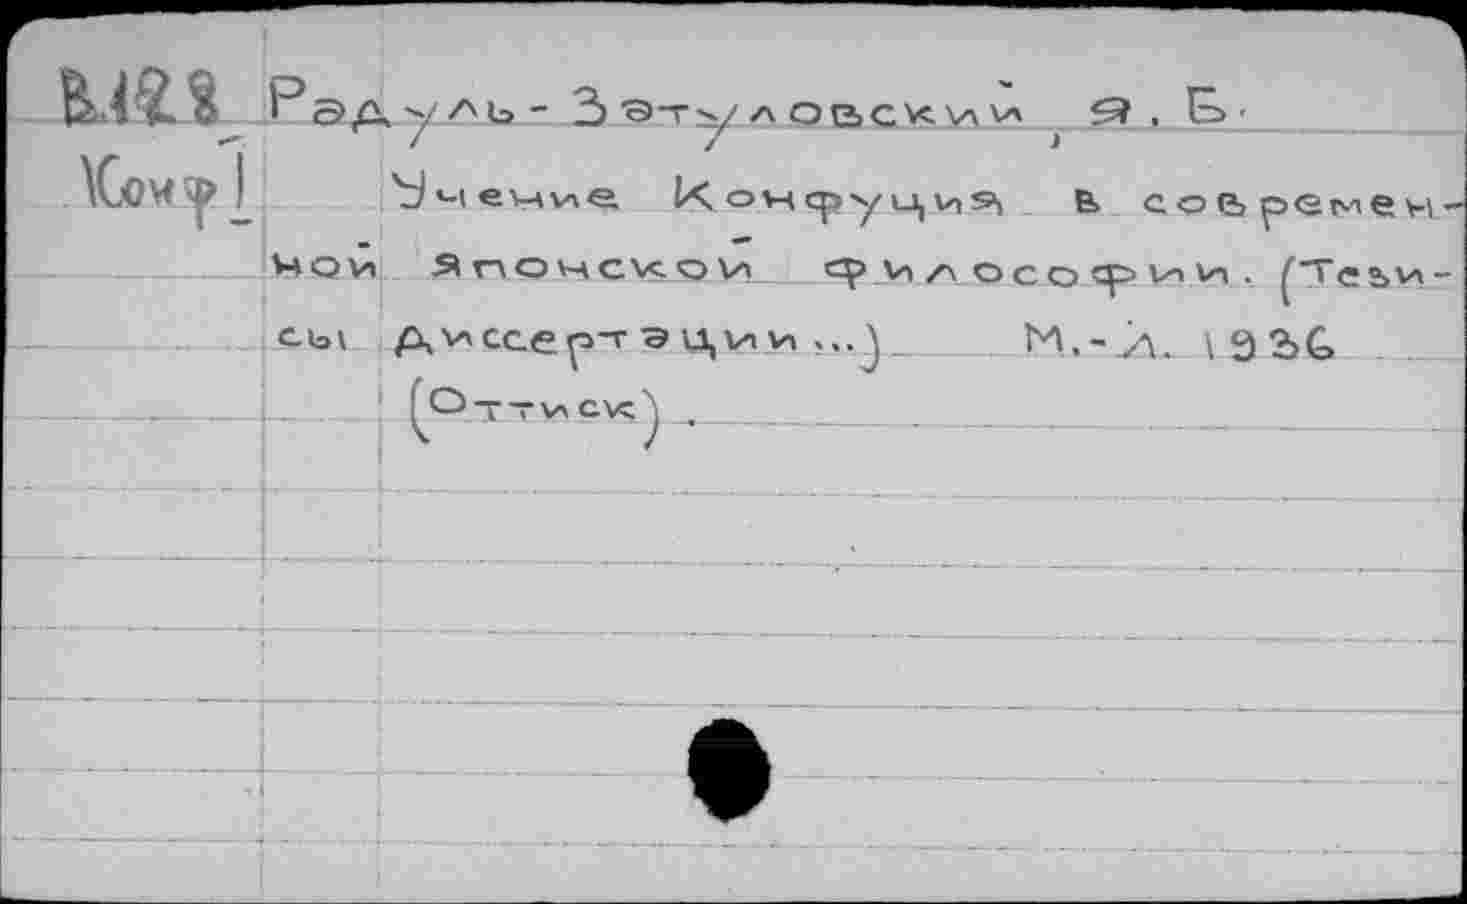 В.128 Радуль-Затуловский, Я. Б.
Конф Учение Конфуция в современ-
ной японской философии. (Тези-
сы диссертации...) М.-Л. 1936
(Оттиск).